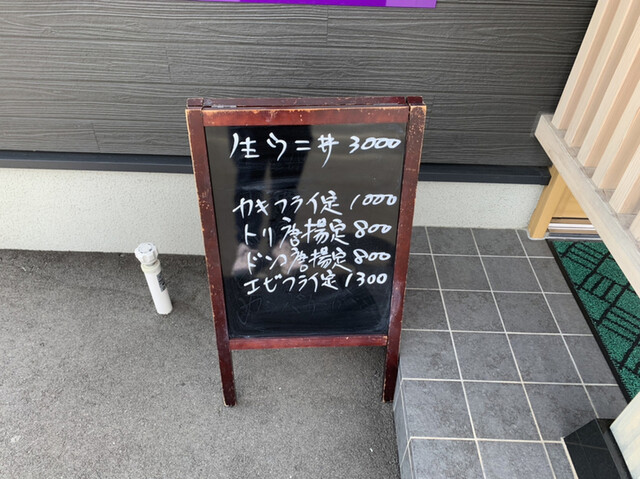 生ウニ丼 3000
カキフライ定 1000
トリ唐揚定 800
ドンコ唐揚定 800
エビフライ定 1300